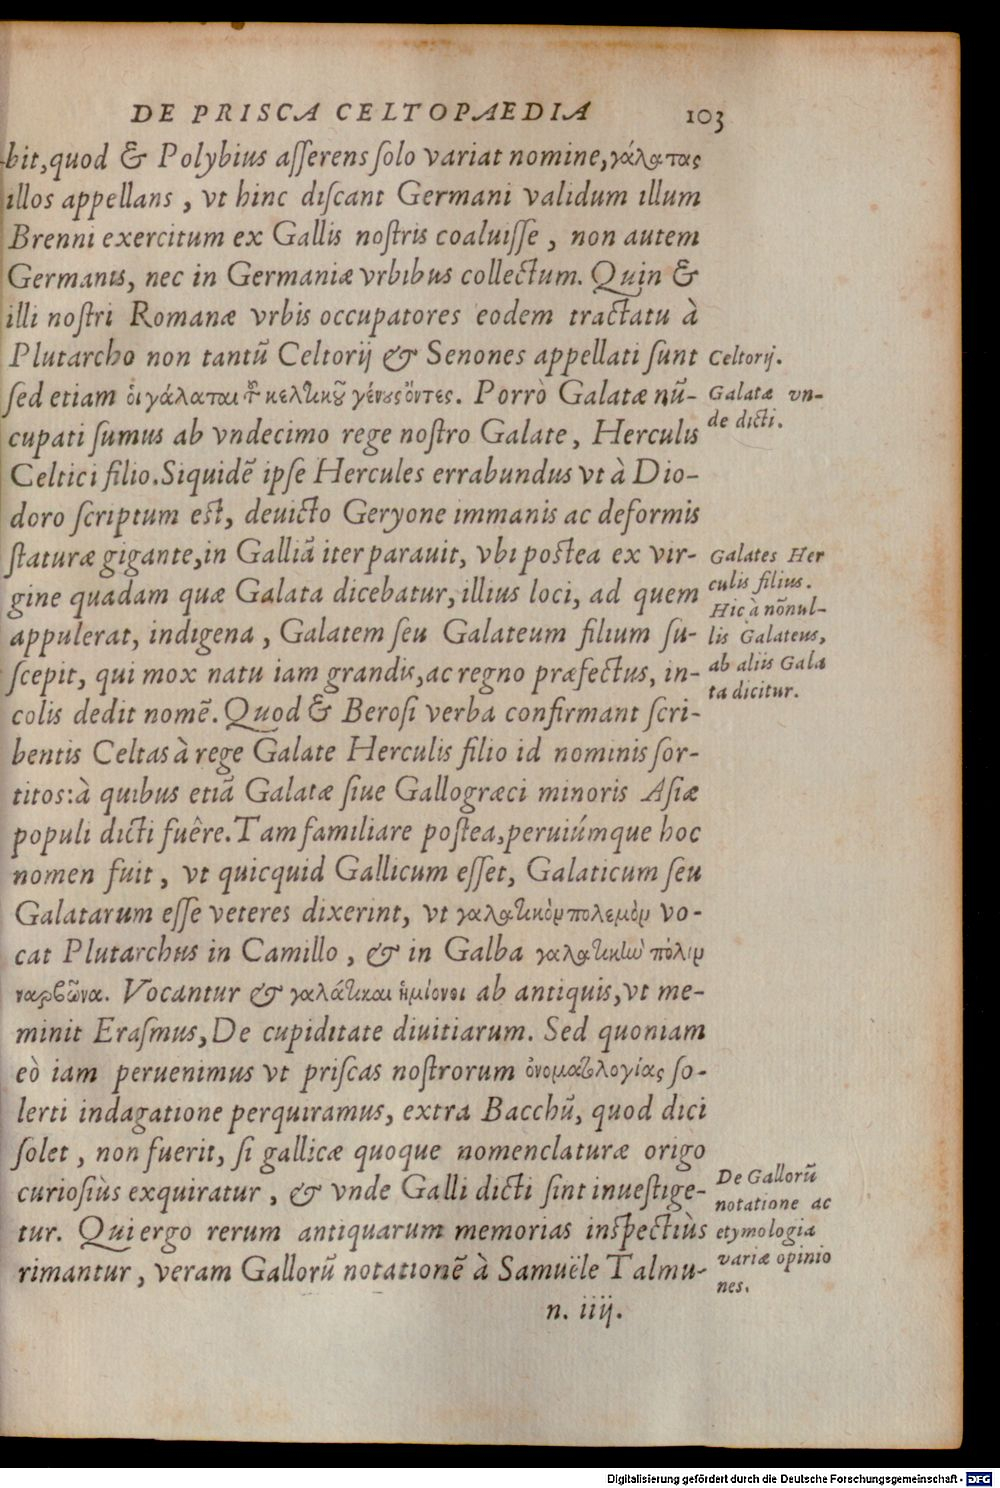 DE PRISCA CELTOPAEDIA 103
bit, quod & Polybius aſſerens ſolo variat nomine, γάλατας
illos appellans, vt hinc diſcant Germani validum illum
Brenni exercitum ex Gallis noſtris coaluiſſe, non autem
Germanis, nec in Germaniæ vrbibus collectum. Quin &
illi noſtri Romanæ vrbis occupatores eodem tractatu à
Plutarcho non tantũ Celtorij & Senones appellati ſunt
Celtorij.
ſed etiam ὁι γάλαται τ κελτικοῦ γένους ὄντες. Porrò Galatæ nũ-
Galatæ vn-
cupati ſumus ab vndecimo rege noſtro Galate, Herculis
de dicti.
Celtici filio. Siquidẽ ipſe Hercules errabundus vt à Dio-
doro ſcriptum eſt, deuicto Geryone immanis ac deformis
ſtaturæ gigante, in Galliã iter parauit, vbi poſtea ex vir-
Galates Her
gine quadam quæ Galata dicebatur, illius loci, ad quem
culis filius.
Hic à nõnul-
appulerat, indigena, Galatem ſeu Galateum filium ſu-
lis Galateus,
ſcepit, qui mox natu iam grandis, ac regno præfectus, in-
ab aliis Gala
ta dicitur.
colis dedit nomẽ. Quod & Beroſi verba confirmant ſcri-
bentis Celtas à rege Galate Herculis filio id nominis ſor-
titos: à quibus etiã Galatæ ſiue Gallogræci minoris Aſiæ
populi dicti fuêre. Tam familiare poſtea, peruiúmque hoc
nomen fuit, vt quicquid Gallicum eſſet, Galaticum ſeu
Galatarum eſſe veteres dixerint, vt γαλατικὸν πολεμὸν vo-
cat Plutarchus in Camillo, & in Galba γαλατικὼ πόλιν
ναρβῶνα. Vocantur & γαλάτικαι ἡμίονοι ab antiquis, vt me-
minit Eraſmus, De cupiditate diuitiarum. Sed quoniam
eò iam peruenimus vt priſcas noſtrorum ὀνοματολογίας ſo-
lerti indagatione perquiramus, extra Bacchũ, quod dici
ſolet, non fuerit, ſi gallicæ quoque nomenclaturæ origo
curioſiùs exquiratur, & vnde Galli dicti ſint inueſtige-
De Gallorũ
notatione ac
tur. Qui ergo rerum antiquarum memorias inſpectiùs
etymologia
rimantur, veram Gallorũ notationẽ à Samuële Talmu-
variæ opinio
nes.
n. iiij.
Digitalisierung gefördert durch die Deutsche Forschungsgemeinschaft - DFG